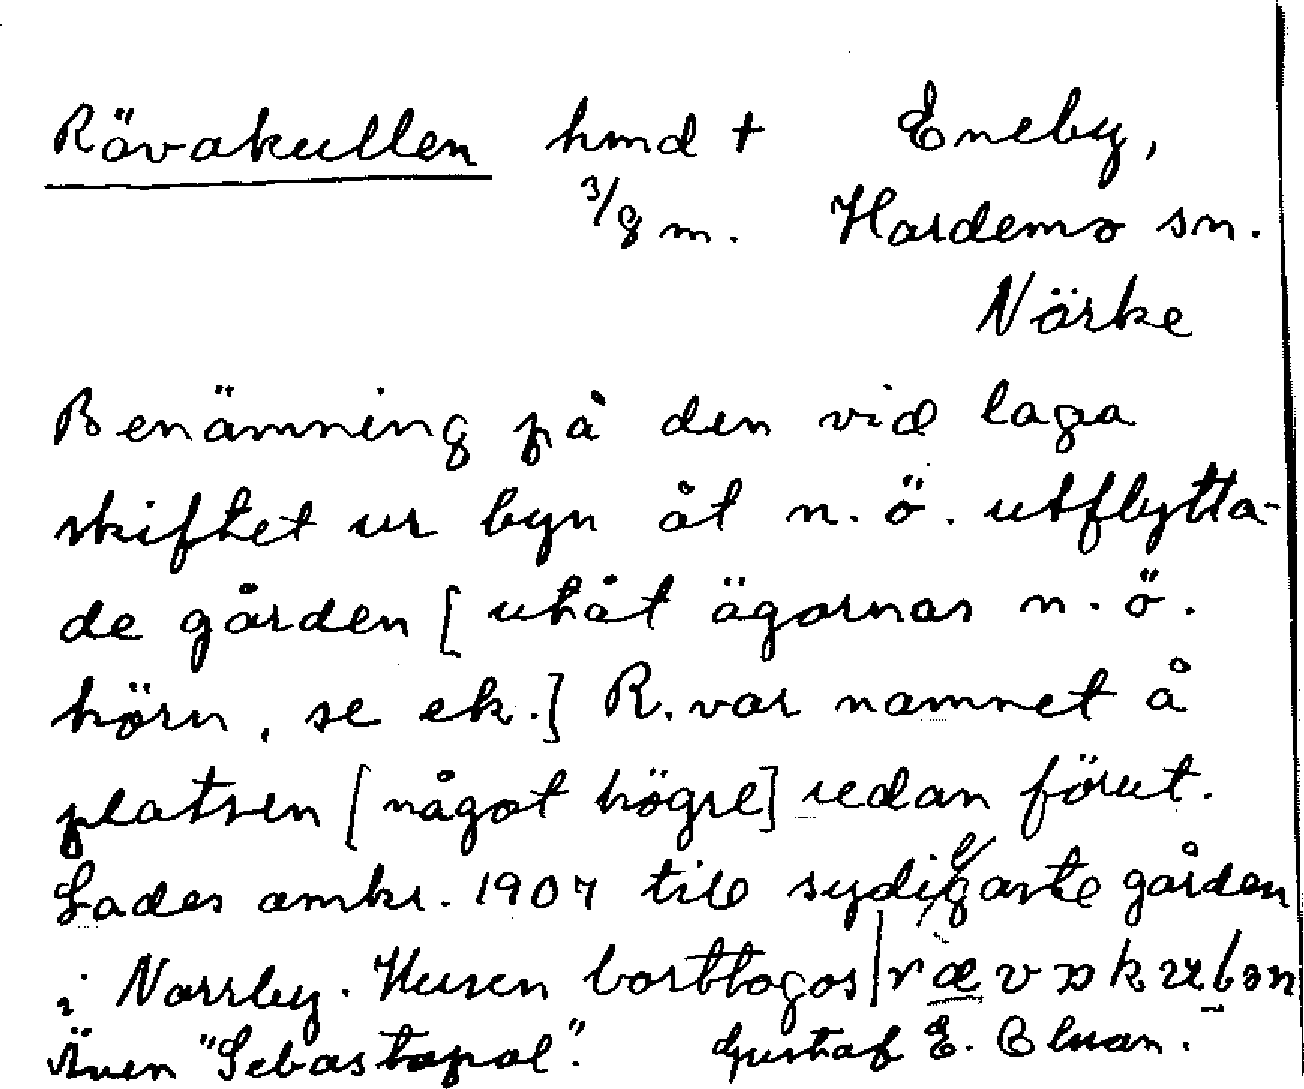 Rävakullen hmd † Eneby,
3/8 m. Hardemo sn.
Närke
Benämning på den vid laga
skiftet ur byn åt n.ö. utflytta-
de gården [utåt ägornas n.ö.
hörn, se ek.] R. var namnet å
platsen [något högre] redan förut.
Lades omkr. 1907 till sydligaste gården
i Norrby. Husen borttogos
Även "Sebastopol". Gustaf E.